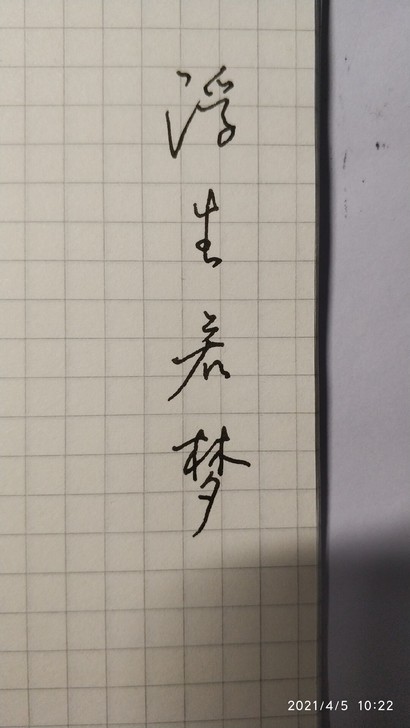 浮生若梦
2021/4/5 10:22